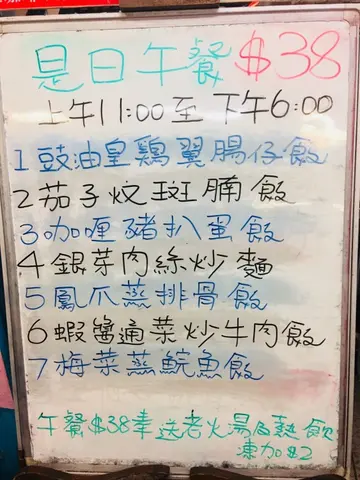 是日午餐 $38
上午11:00至下午6:00
1豉油皇鷄翼腸仔飯
2茄子炆斑腩飯
3咖喱豬扒蛋飯
4銀芽肉絲炒麵
5鳳爪蒸排骨飯
6蝦醬通菜炒牛肉飯
7梅菜蒸鯇魚飯
午餐$38幸送老火湯及熱飲
凍加$2